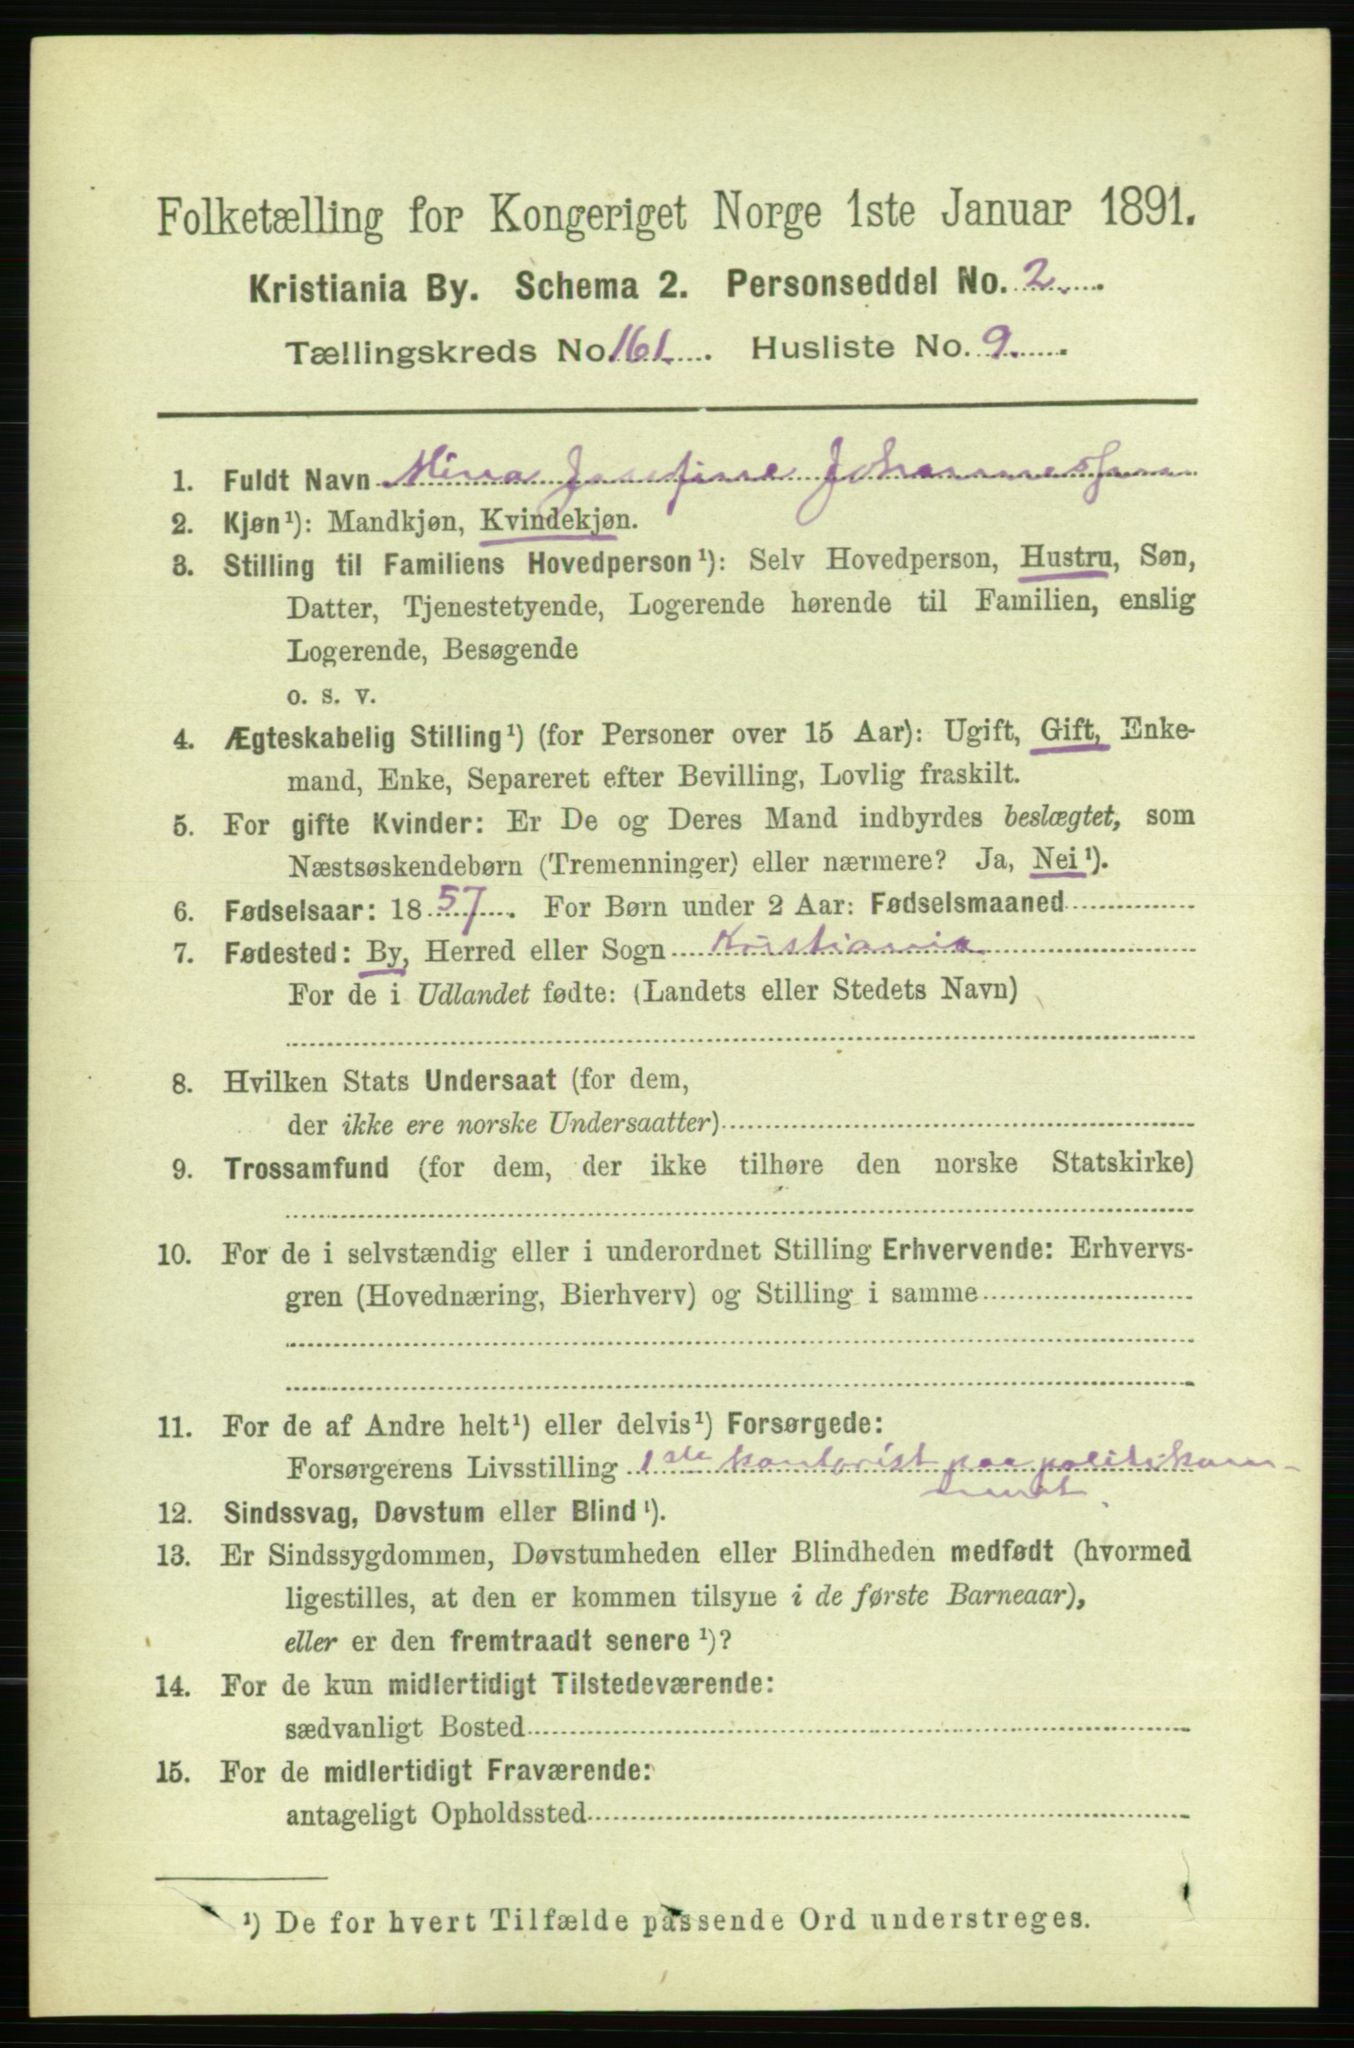 Folketælling for Kongeriget Norge 1ste Januar 1891.
Kristiania By. Schema 2. Personseddel No. 2.
Tællingskreds No. 161. Husliste No. 9.
1. Fuldt Navn Mina Josefine Johannessen
2. Kjøn¹): Mandkjøn, Kvindekjøn.
3. Stilling til Familiens Hovedperson¹): Selv Hovedperson, Hustru, Søn,
Datter, Tjenestetyende, Logerende hørende til Familien, enslig
Logerende, Besøgende
o. s. v.
4. Ægteskabelig Stilling¹) (for Personer over 15 Aar): Ugift, Gift, Enke-
mand, Enke, Separeret efter Bevilling, Lovlig fraskilt.
5. For gifte Kvinder: Er De og Deres Mand indbyrdes beslægtet, som
Næstsøskendebørn (Tremenninger) eller nærmere? Ja, Nei¹).
6. Fødselsaar: 1857. For Børn under 2 Aar: Fødselsmaaned
7. Fødested: By, Herred eller Sogn Kristiania
For de i Udlandet fødte: (Landets eller Stedets Navn)
8. Hvilken Stats Undersaat (for dem,
der ikke ere norske Undersaatter)
9. Trossamfund (for dem, der ikke tilhøre den norske Statskirke)
10. For de i selvstændig eller i underordnet Stilling Erhvervende: Erhvervs-
gren (Hovednæring, Bierhverv) og Stilling i samme
11. For de af Andre helt¹) eller delvis¹) Forsørgede:
Forsørgerens Livsstilling 1ste kontorist paa politikam-
meret
12. Sindssvag, Døvstum eller Blind¹).
13. Er Sindssygdommen, Døvstumheden eller Blindheden medfødt (hvormed
ligestilles, at den er kommen tilsyne i de første Barneaar),
eller er den fremtraadt senere¹)?
14. For de kun midlertidigt Tilstedeværende:
sædvanligt Bosted
15. For de midlertidigt Fraværende:
antageligt Opholdssted
¹) De for hvert Tilfælde passende Ord understreges.